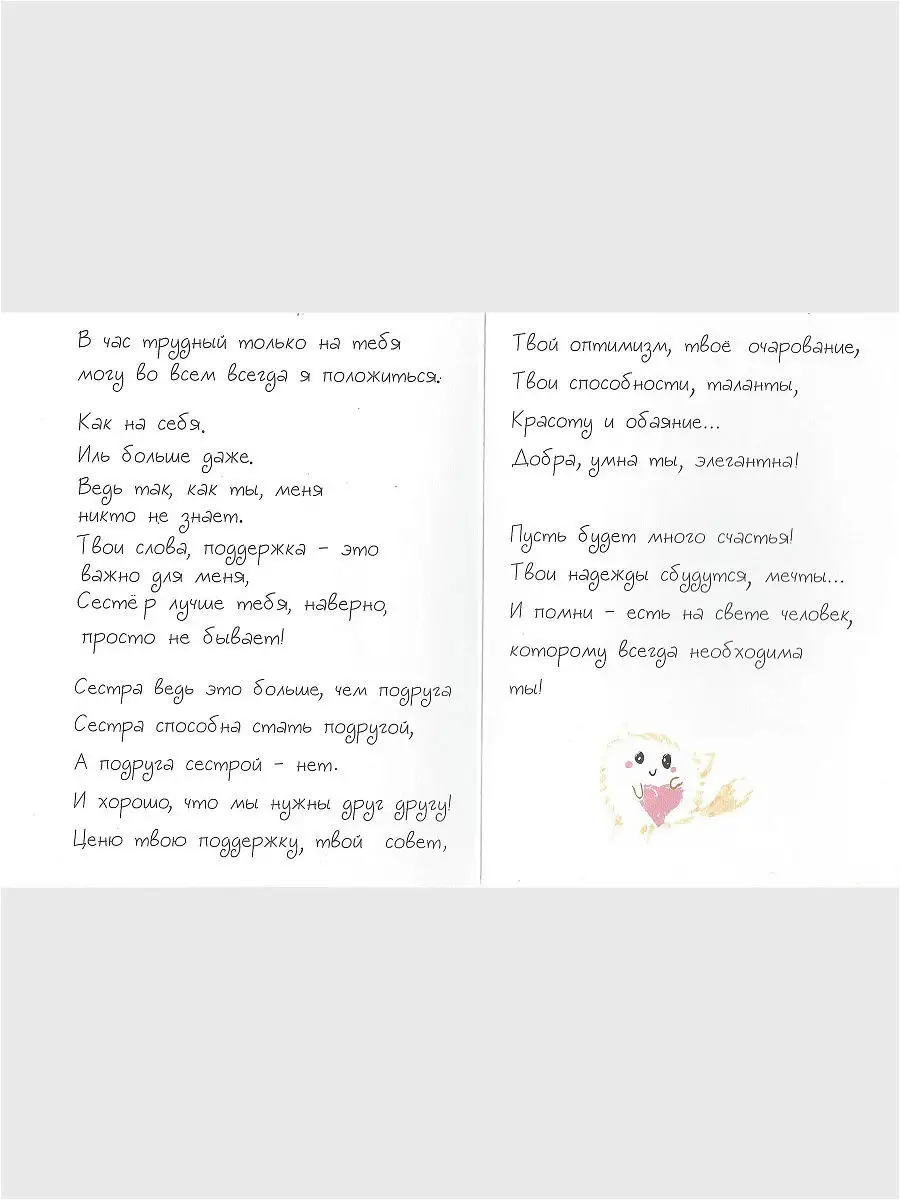 В час трудный только на тебя
могу во всем всегда я положиться.
Как на себя.
Иль больше даже.
Ведь так, как ты, меня
никто не знает.
Твои слова, поддержка - это
важно для меня,
Сестёр лучше тебя, наверно,
просто не бывает!
Сестра ведь это больше, чем подруга
Сестра способна стать подругой,
А подруга сестрой - нет.
И хорошо, что мы нужны друг другу!
Ценю твою поддержку, твой совет,
Твой оптимизм, твоё очарование,
Твои способности, таланты,
Красоту и обаяние...
Добра, умна ты, элегантна!
Пусть будет много счастья!
Твои надежды сбудутся, мечты...
И помни - есть на свете человек,
которому всегда необходима
ты!